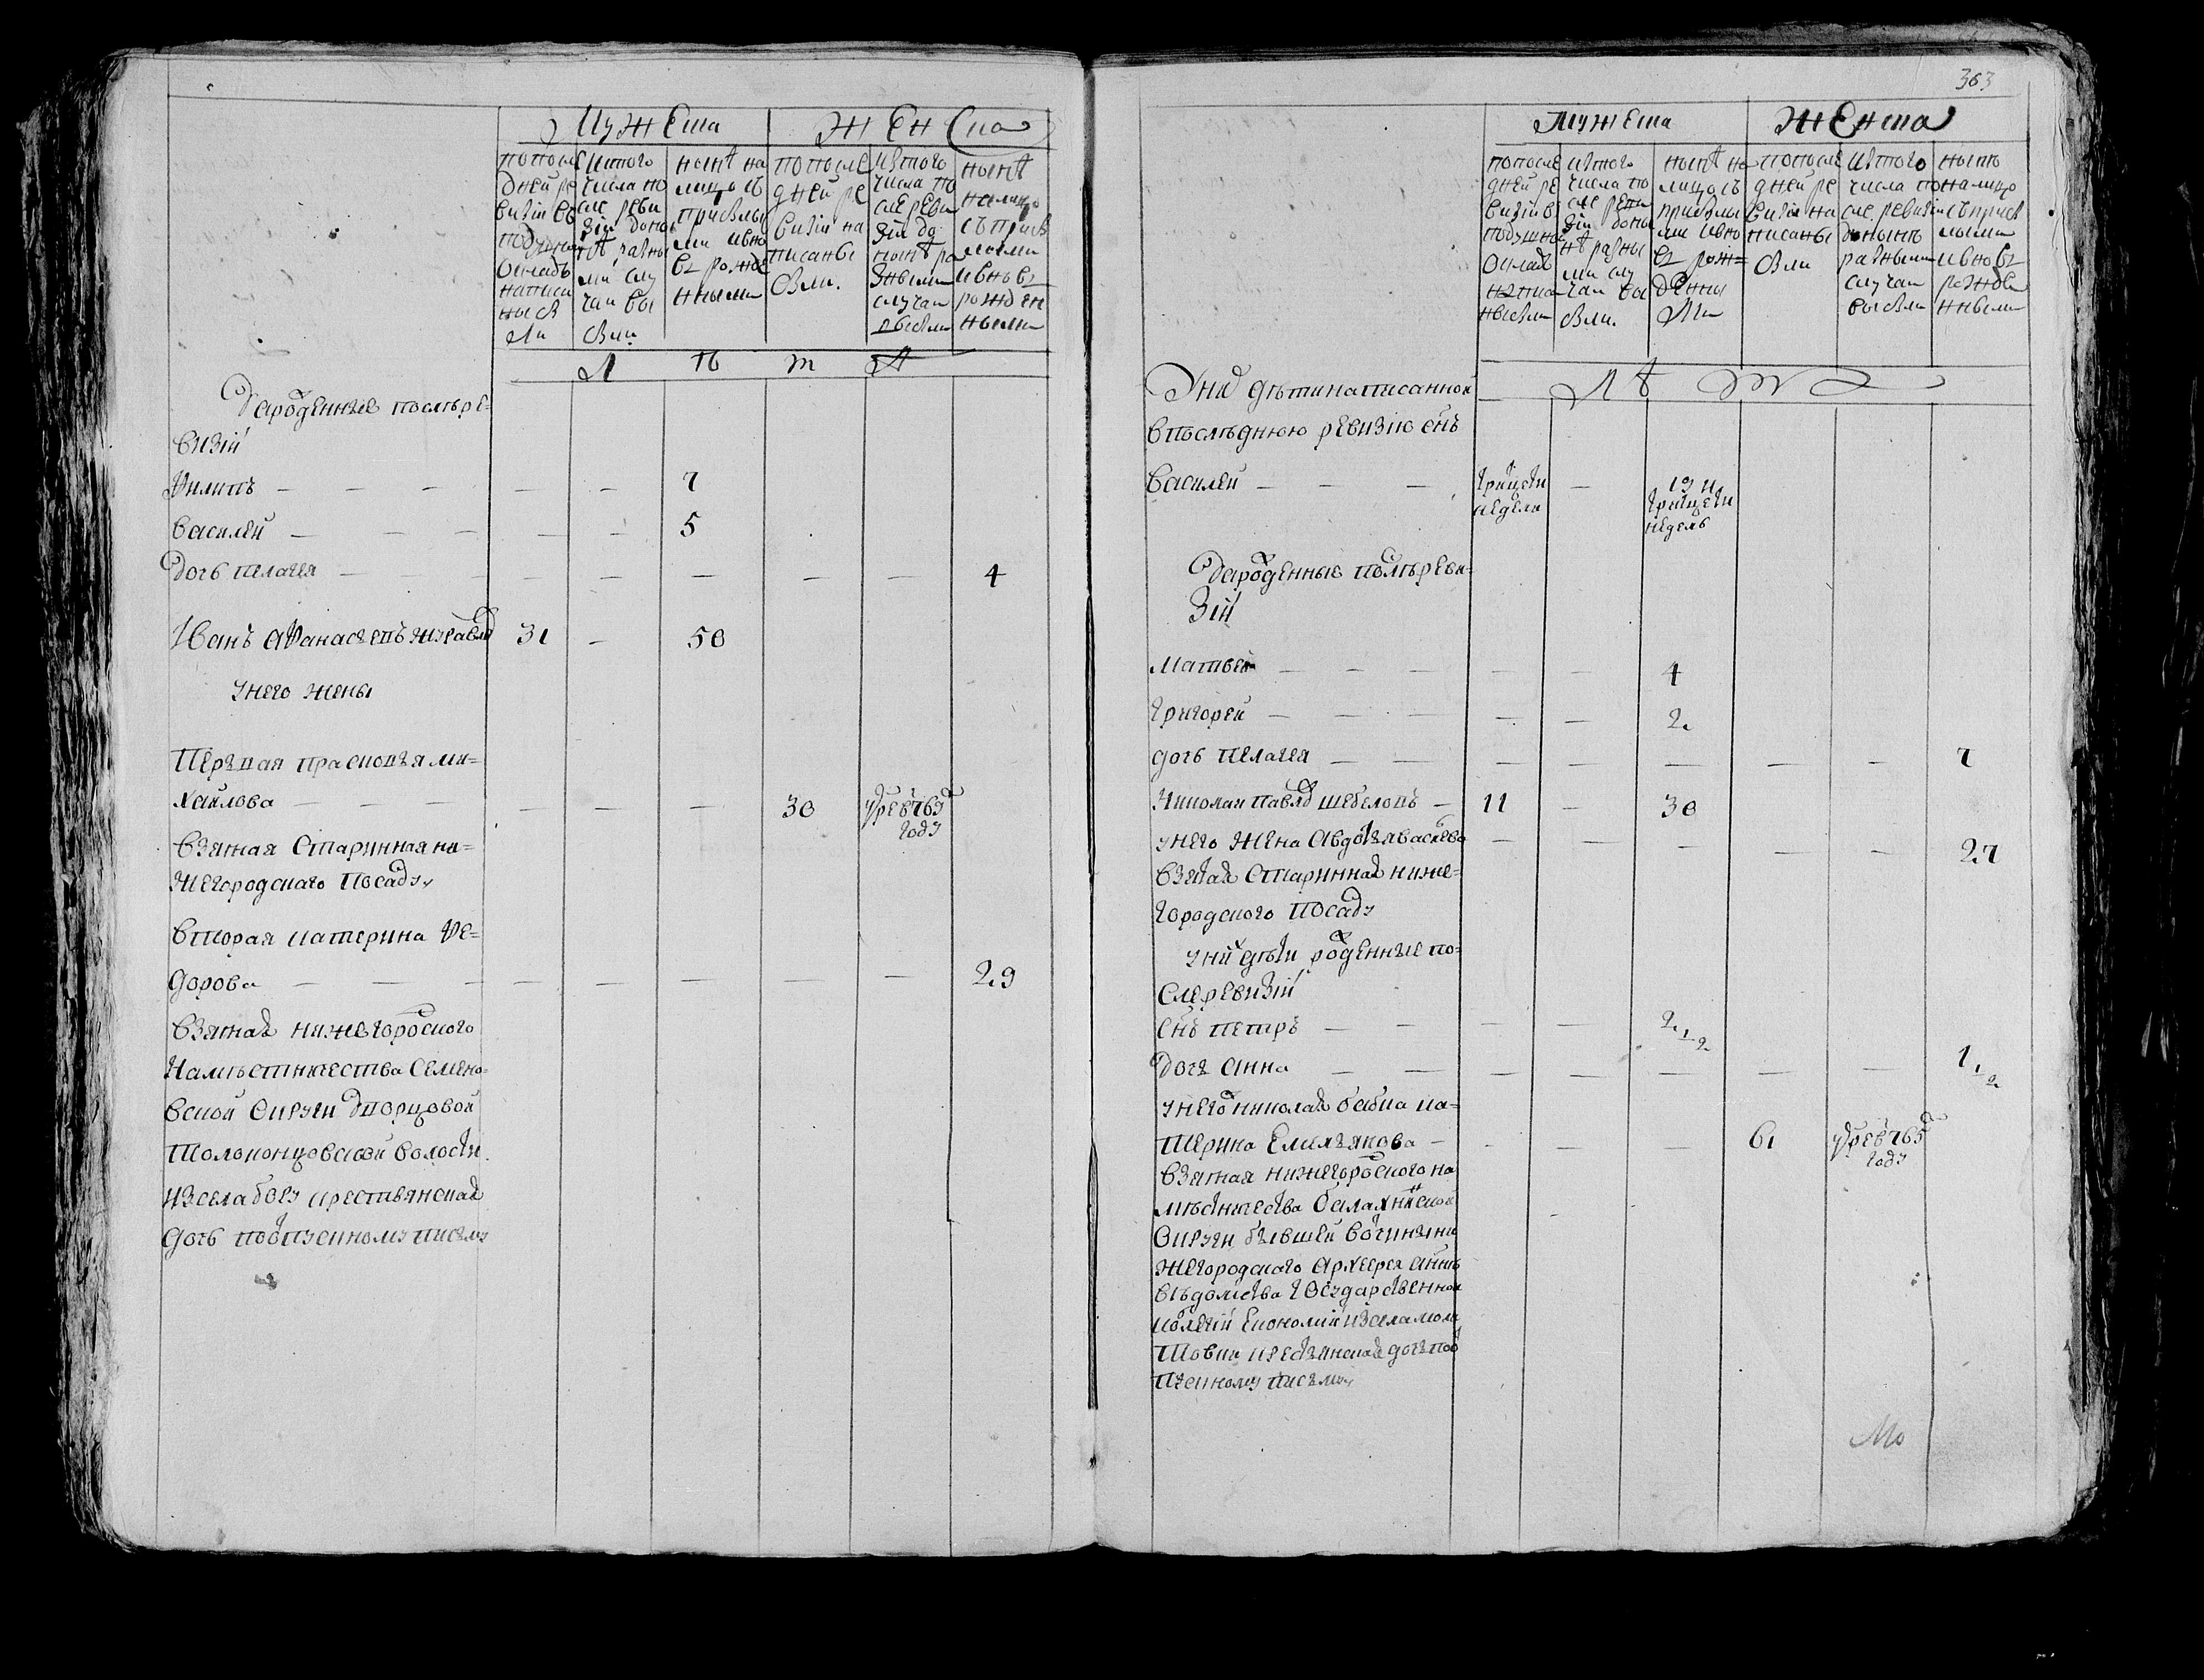 Мужеска
Женска
попосле
дней ре
визіи въ
подушной
окладъ
написа
ны бы
ли
ис того
числа по
сле реви
зіи до ны
нѣ разны
ми слу
чаи вы
были
нынѣ на
лицо съ
прибылы
ми и вно
вь рожде
нными
попосле
дней ре
визіи на
писаны
были.
ис того
числа по
сле реви
зіи до
нынѣ ра
зными
случаи
выбыли
нынѣ
налицо
съ прибы
лыми
и вновь
рожден
ными
Л ѣ т А
Да роденные послѣ ре=
визіи
Филипъ — — — — — 7
Василей — — — — — 5
Дочь Пелагея — — — — — — — — 4
Иванъ Афанасьевъ Журавле 31 — 50
У него жены
Первая Прасковья Ми=
хайлова — — — — — — 30 умре в 763 году
Взятая старинная ни=
жегородскаго посаду
Вторая Катерина Фе=
дорова — — — — — — — — 29
Взятая нижегородского
Наместничества Семено=
вской округи дворцовой
Толоконцовской волости
из села Бору крестьянская
дочь по отпускному письму
363
Мужеска
Женска
попосле
дней ре
визіи в
подушной
окладъ
написа
ны были
ис того
числа по
сле реви
зіи до ны
нѣ разны
ми слу
чаи вы
были.
нынѣ на
лицо съ
прибылы
ми и вно
вь рож=
денны
Ми
попосле
дней ре
визіи на
писаны
были
ис того
числа по
сле ревизіи
до нынѣ
разными
случаи
выбыли
нынѣ
налицо
съ приб
лыми
и вновь
рожде
нными
Л ѣ т А
У них дѣти написанной
в последнюю ревизію снъ
Василей — — — тритцети недели — 19 и тритцети недель
Да роденные послѣ реви=
зіи
Матвей — — — — — 4
Григорей — — — — — 2.
дочь Пелагея — — — — — — — 7
Николай Павлов Шебеловъ — 11 — 30
у него жена Авдотья Васильева — — — — — 27
Взятая старинная ниже=
городского посаду
у них дѣти роденные по=
сле ревизіи
Снъ Петръ — — — — 2 1/2
Дочь Анна — — — — — — — 1 1/2
у него Николая бабка Ка=
терина Емельянова — — — — 61 умре в 765 году
Взятая нижегородского на
местничества Балахнинской
округи бывшей вотчины ни
жегородского архіерея а ннѣ
вѣдомства государственной
колегіи економіи из села Моли
товки крестьянская дочь по от
пускному письму
Мо